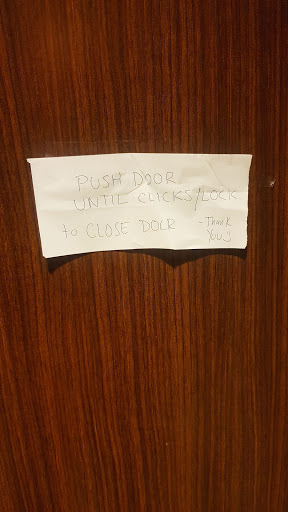 PUSH DOOR
UNTIL CLICKS/LOCK
to CLOSE DOOR - Thank
You :)